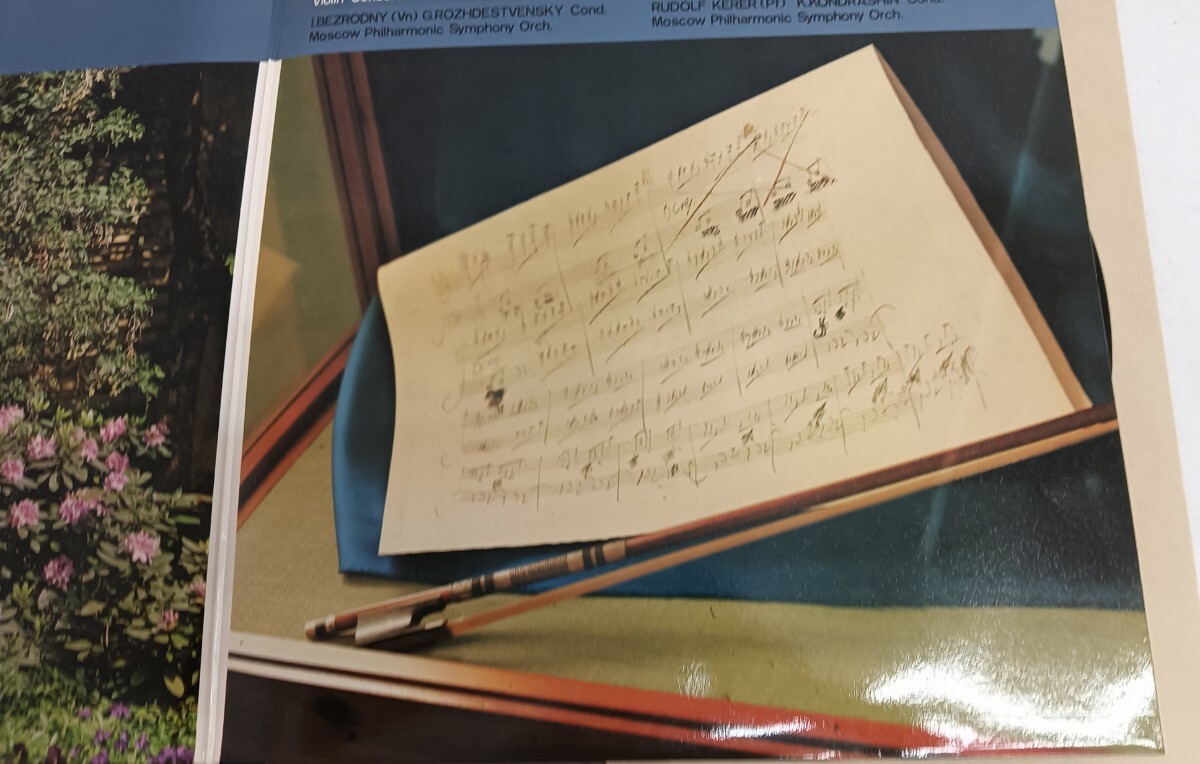 Violin
I.BEZRODNY (Vn) G.ROZHDESTVENSKY Cond.
Moscow Philharmonic Symphony Orch.
RUDOLF KERER (Pf) K.KONDRASHIN Cond.
Moscow Philharmonic Symphony Orch.